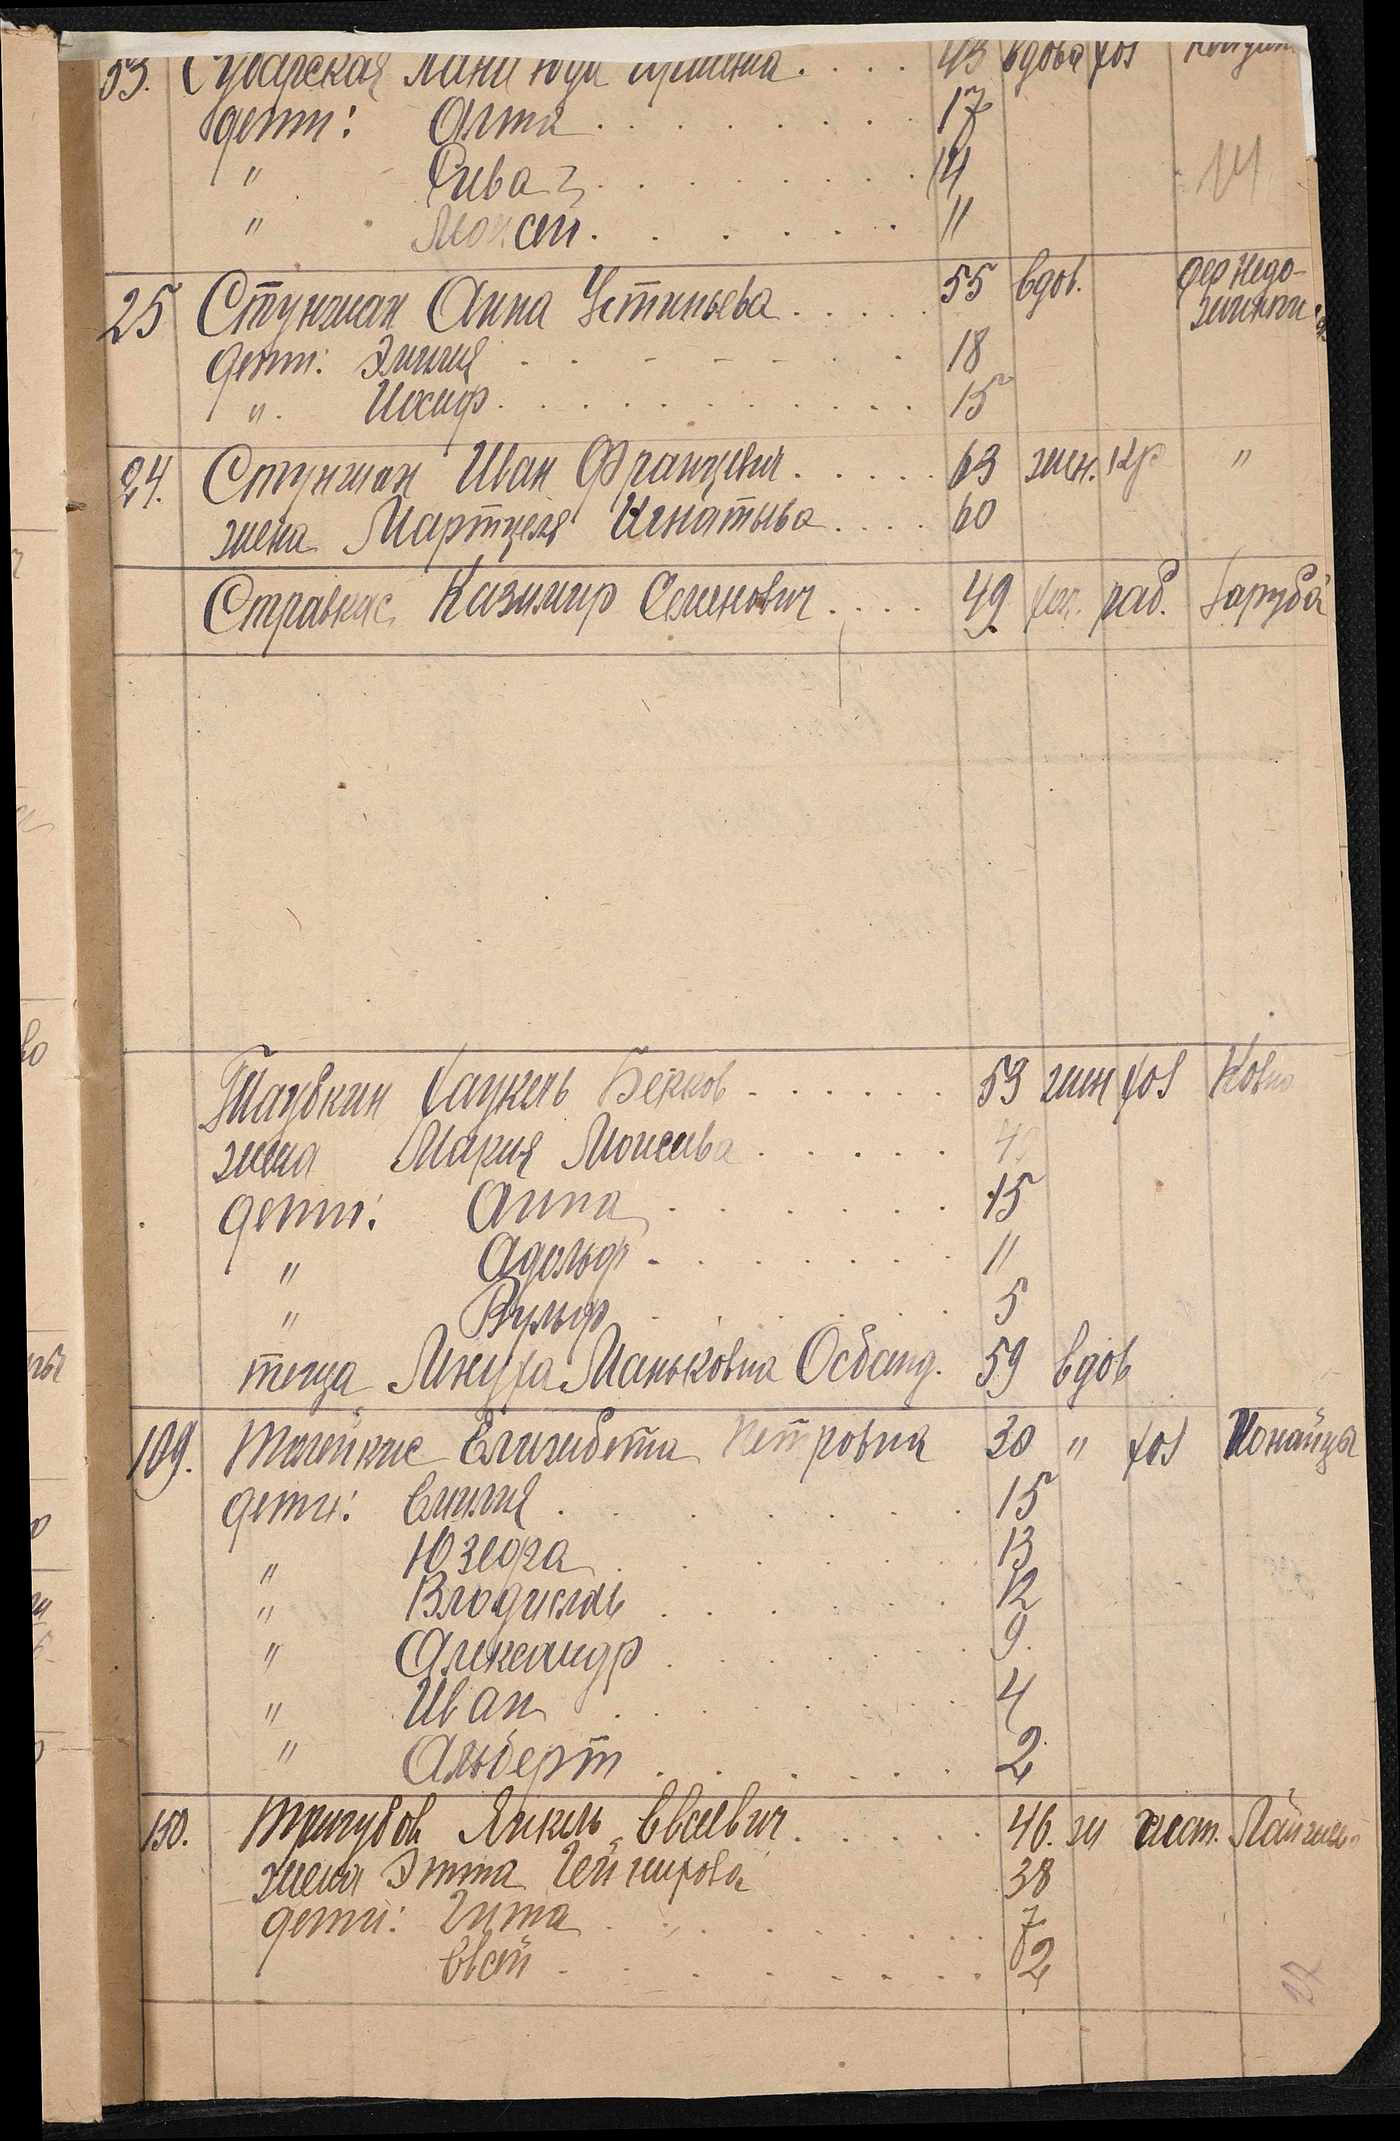 53. Суварская 43 вдова хоз
дети: Алта 17
" Рива 14
" Мойсей 11
14
25 Стунжан Анна Устиньева 55 вдов. дер Недо-
дети: Эмилия 18
" Иосиф 15
24. Стунжан Иван Францевич 63 жен. кр "
жена Мартцеля Игнатьева 60
Стравкас Казимир Семенович 49 хол. раб. Гаруба
Таубкин Хаукель Берков 53 жен хоз Ковно
жена Мария Моисеева
дети: Анна 15
" Адольф 11
" Вульф 5
теща Маньковна 59 вдов
109. Елизабета Петровна 30 " хоз Понайцы
дети: Емилия 15
" Юзефа 13
" Владислав 12
" Александр 9.
" Иван 4
" Альберт 2
150. Тригубов Янкель Евсеевич 46. ж
жена Этта 38
дети: Гита 7
Евсей 2
27